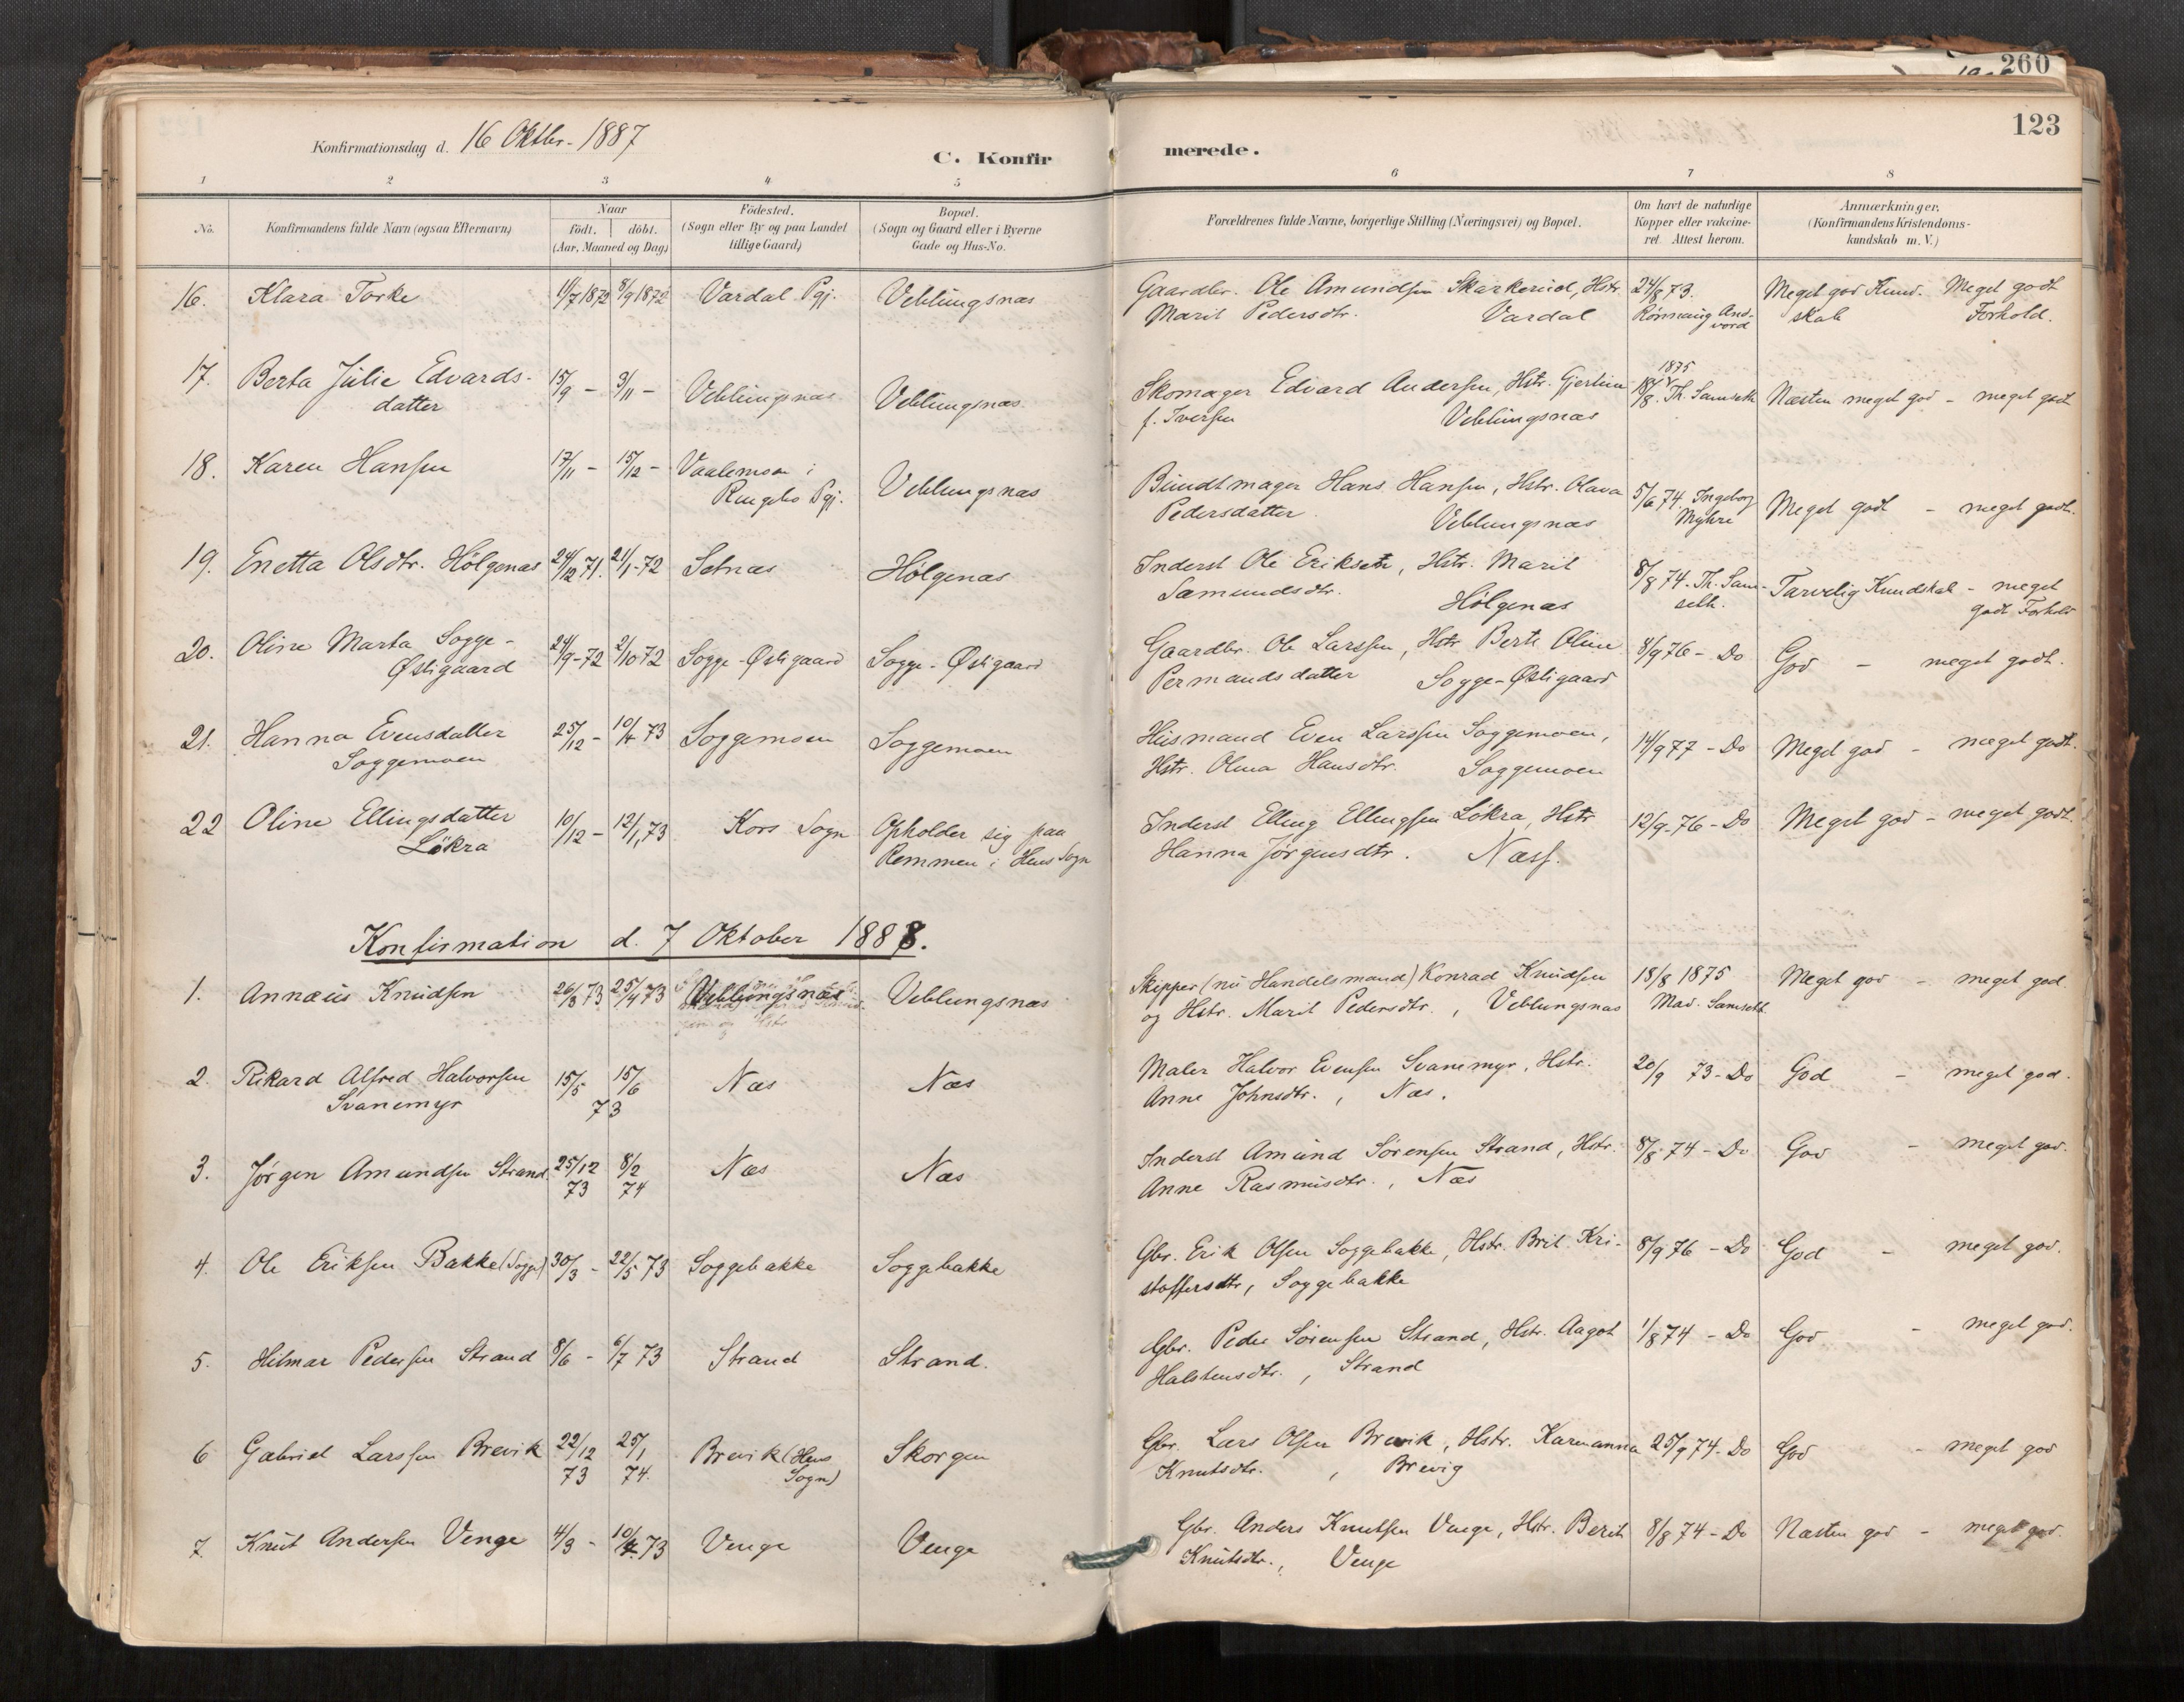 260
123
Konfirmationsdag d. 16 Oktbr. 1887
C. Konfir merede.
1 2 3 4 5 6 7 8
No. Konfirmandens fulde Navn (ogsaa Efternavn) Naar födt. döbt. (Aar, Maaned og Dag) Födested. (Sogn eller By og paa Landet tillige Gaard) Bopæl. (Sogn og Gaard eller i Byerne Gade og Hus-No. Forældrenes fulde Navne, borgerlige Stilling (Næringsvei) og Bopæl. Om havt de naturlige Kopper eller vakcineret. Attest herom. Anmærkninger. (Konfirmandens Kristendomskundskab m. V.)
16. Klara Torke 11/7 1872 8/9 1872 Vardal Pgj. Veblungsnæs Gaardbr. Ole Amundsen Skarkerud, Hstr. 24/8 73. Meget god Kund- Meget godt
Marit Pedersdtr. Vardal Rønnaug And- skab Forhold.
vord
17. Berta Julie Edvards- 15/9 - 3/11 - Veblungsnæs Veblungsnæs Skomager Edvard Andersen, Hstr. Gjertine 1875 18/8. Th. Samseth Næsten meget god - meget godt
datter f. Iversen Veblungsnæs
18. Karen Hansen 17/11 - 15/12 - Vaalemoen i Veblungsnæs Bundtmager Hans Hansen, Hstr. Olava 5/6 74. Ingeborg Meget godt - meget godt.
Ringebo Pgj. Pedersdatter Veblungsnæs Myhre
19. Enetta Olsdtr. Hølgenæs 24/12 71. 21/1-72 Setnæs Hølgenæs Inderst Ole Eriksen, Hstr. Marit 8/8 74. Th. Sam- Tarvelig Kundskab - meget
Samundsdtr. Hølgenæs seth. godt Forhold
20. Oline Marta Sogge- 24/9-72 2/10 72 Sogge-Østigaard Sogge-Østigaard Gaardbr. Ole Larssen, Hstr Berte Oline 8/9 76 - Do God - meget godt.
Østigaard Permandsdatter Sogge-Østigaard
21. Hanna Evensdatter 25/12 - 10/4 73 Soggemoen Soggemoen Husmand Even Larssen Soggemoen, 14/9 77 - Do Meget god - meget godt.
Soggemoen Hstr. Olina Hansdtr. Soggemoen
22 Oline Ellingsdatter 10/12 - 12/1, 73 Kors Sogn Opholder sig paa Inderst Elling Ellingsen Løkra, Hstr 12/9-76 - Do Meget god - meget godt.
Løkra Remmen i Hens Sogn Hanna Jørgensdtr. Næss.
Konfirmation d. 7 Oktober 1888.
1. Annæus Knudsen 26/3 73 25/4 73 Veblungsnæs Veblungsnæs Skipper (nu Handelsmand) Konrad Knudsen 18/8 1875 Meget god - meget god
og Hstr. Marit Pedersdtr., Veblungsnæs Mad. Samseth
2. Rikard Alfred Halvorsen 15/5 15/6 Næs Næs Maler Halvor Evensen Svanemyr, Hstr. 20/9 73 - Do God - meget god.
Svanemyr 73 Anne Johnsdtr., Næs.
3. Jørgen Amundsen Strand 25/12 73 8/2 74 Næs Næs Inderst Amund Sørensen Strand, Hstr. 8/8 74 - Do God - meget god.
Anne Rasmusdtr., Næs
4. Ole Eriksen Bakke (Sogge) 30/3 - 22/5 73 Soggebakke Soggebakke Gbr. Erik Olsen Soggebakke, Hstr. Brit Kri- 8/9 76 - Do God - meget god.
stoffersdtr, Soggebakke
5. Hilmar Pedersen Strand 8/6 - 6/7 73 Strand Strand. Gbr. Peder Sørensen Strand, Hstr. Aagot 1/8 74 - Do God - meget god.
Halstensdtr., Strand
6 Gabriel Larssen Brevik 22/12 73 25/1 74. Brevik (Hens Skorgen Gbr. Lars Olsen Brevik, Hstr. Karenanna 25/9 74. Do God - meget god
Sogn) Knutsdtr., Brevig
7. Knut Andersen Venge 4/3 - 10/4 73 Venge Venge Gbr. Anders Knutsen Venge, Hstr. Berit 8/8 74 - Do Næsten god - meget god.
Knutsdtr., Venge